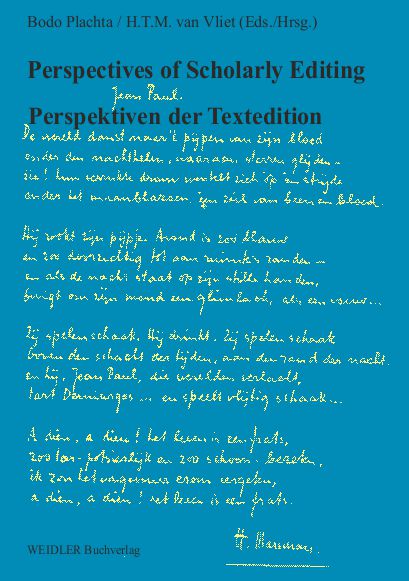 Bodo Plachta / H.T.M. van Vliet (Eds./Hrsg.)
Perspectives of Scholarly Editing
Jean Paul.
Perspektiven der Textedition
De wereld danst naar 't pijpen van zijn bloed
onder den nachthelm, waaraan sterren glijden –
zie! hun droom zich op
onder het van been en bloed.
Hij rookt zijn pijpje. Avond is zoo blauw
en zoo doorzichtig tot aan ruimte's randen –
en als de nacht staat op zijn stille handen,
buigt om zijn mond een glimlach, als een vrouw...
Zij spelen schaak. Hij drinkt. Zij spelen schaak
boven den schacht der tijden, aan den rand der nacht.
en hij, Jean Paul, die werelden verlacht,
tart Demiurgos ... en speelt vlijtig schaak...
A dieu, a dieu! het leven is een frats,
zoo potsierlijk en zoo schoon bezeten,
ik zou het ongaarne vergeten,
a dieu, a dieu! het leven is een frats.
H. Marsman.
WEIDLER Buchverlag